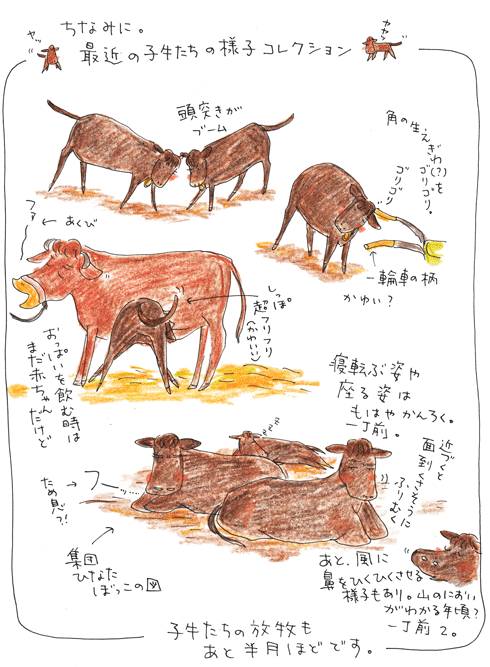 ちなみに。
最近の子牛たちの様子コレクション
ヤッ
ヤヤッ
頭突きが
ブーム
角の生えぎわ(?)を
ゴリゴリ。
ゴリゴリ
一輪車の柄
かゆい?
ファ〜
あくび
しっぽ
超フリフリ
(かわいい)
おっぱいを飲む時は
まだ赤ちゃんだけど
寝転ぶ姿や
座る姿は
もはやかんろく。
一丁前。
zzzz
近づくと
面倒くさそうに
ふりむく
ため息?!
フーッ……
集団
ひなた
ぼっこの図
あと、風に
鼻をひくひくさせる
様子もあり。山のにおい
がわかる年頃?
一丁前2。
子牛たちの放牧も
あと半月ほどです。